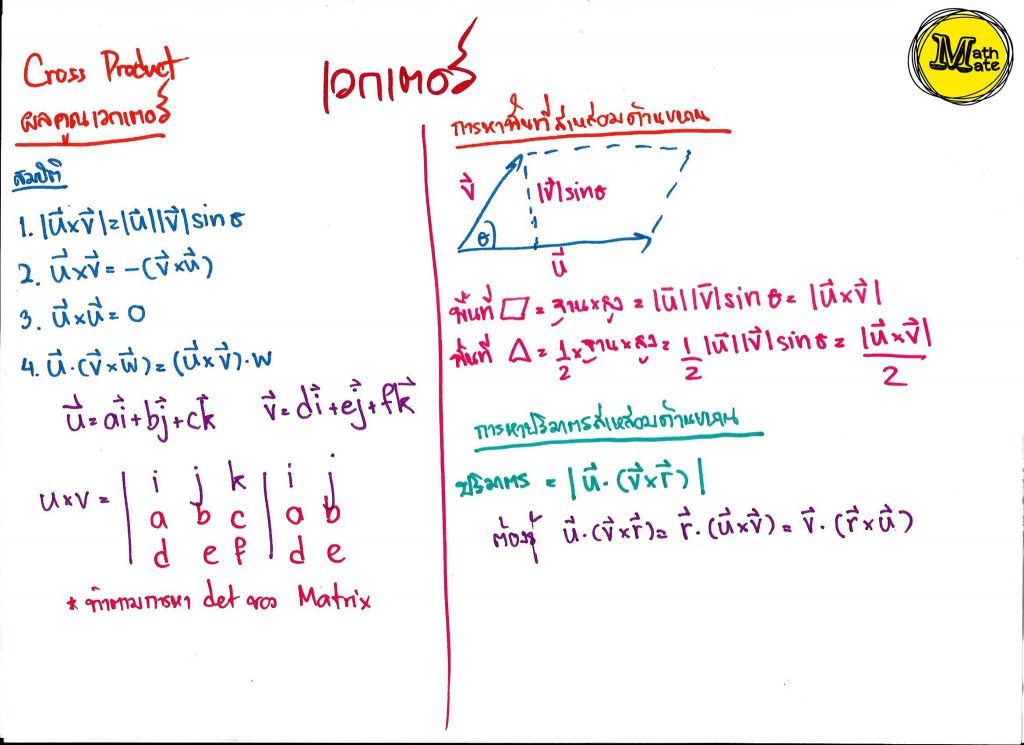 เวกเตอร์
Math
Mate
Cross Product
ผลคูณเวกเตอร์
สมบัติ
1. |u⃗×v⃗|=|u⃗||v⃗|sinθ
2. u⃗×v⃗= -(v⃗×u⃗)
3. u⃗×u⃗= 0
4. u⃗·(v⃗×w⃗)=(u⃗×v⃗)·w
u⃗=ai⃗+bj⃗+ck⃗ v⃗=di⃗+ej⃗+fk⃗
u×v = | i j k | i j
a b c a b
d e f d e
* ทำตามการหา det ของ Matrix
การหาพื้นที่สี่เหลี่ยมด้านขนาน
v⃗ |v⃗|sinθ
θ
u⃗
พื้นที่ ▱ = ฐาน×สูง = |u⃗||v⃗|sinθ= |u⃗×v⃗|
พื้นที่ Δ = 1/2×ฐาน×สูง= 1/2|u⃗||v⃗|sinθ= |u⃗×v⃗|/2
การหาปริมาตรสี่เหลี่ยมด้านขนาน
ปริมาตร = |u⃗·(v⃗×r⃗)|
ต้องรู้ u⃗·(v⃗×r⃗)= r⃗·(u⃗×v⃗)= v⃗·(r⃗×u⃗)